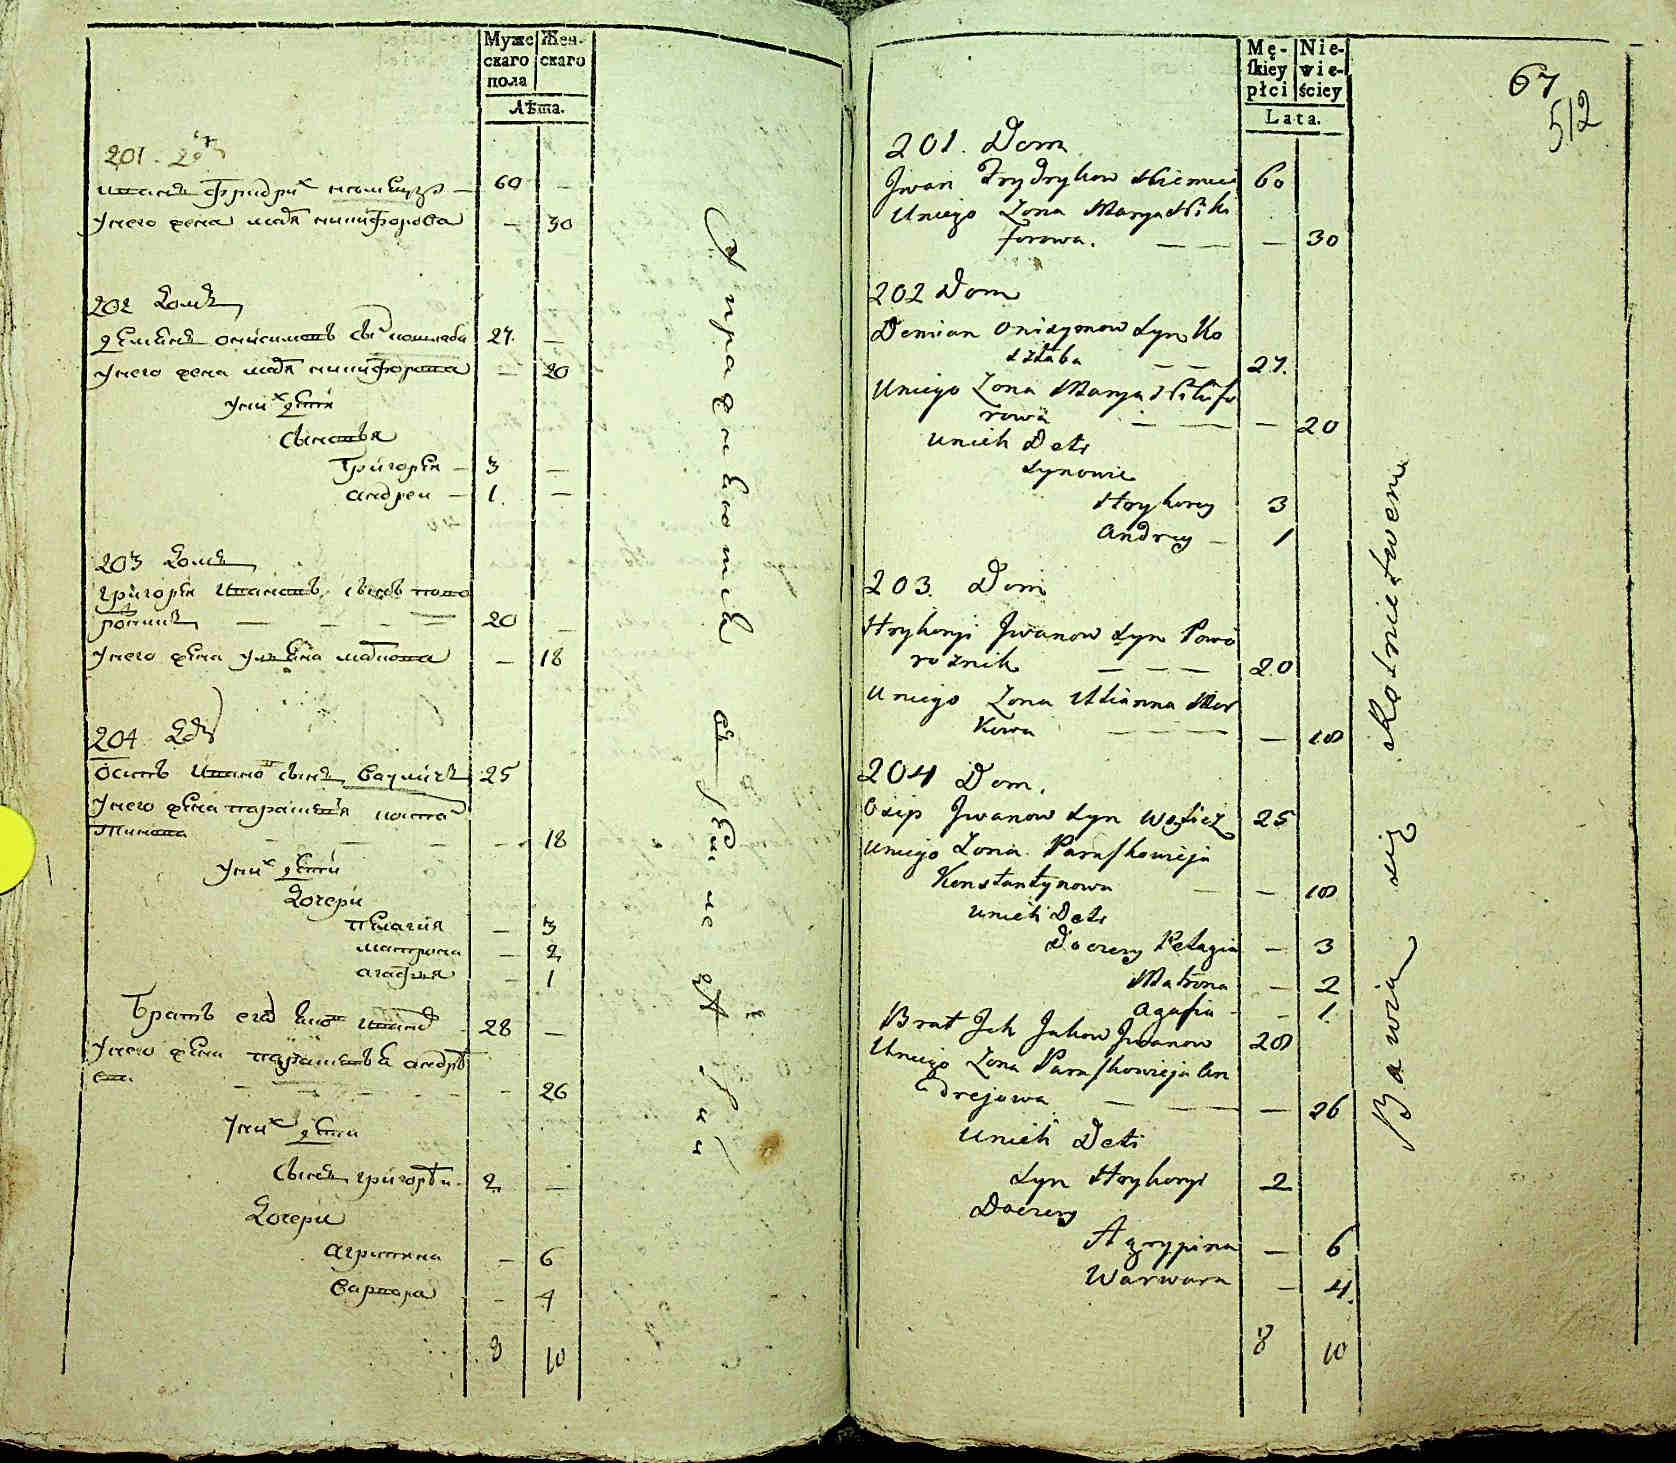 Мужескаго пола
Женскаго
Лѣта.
201. Домъ
Иванъ Фридрих нѣмецъ — 60 —
У него жена мадя никифорова — 30
202 Домъ
Демянъ онисимовъ сынъ 27. —
У него жена никифорова — 20
У них дети
Сыновья
Григорїи — 3 —
андреи — 1. —
203 Домъ
григорїи Ивановъ сынъ пово
рожникъ — 20 —
У него жена ульяна маркова — 18
204 Домъ
Осипъ Иванов сынъ 25
У него жена парасковея конста
нтинова — 18
У них дети
Дочери
пелагия — 3
матрона — 2
агафия — 1
Братъ его яковъ Ивановъ 28 —
У него жена парасковея андрѣ
ева. — 26
У них дети
Сынъ григорѣи. 2 —
Дочери
агрипина — 6
варвара — 4
8 10
Męſkiey płci
Niewieściey
Lata.
67
512
201. Dom
Jwan Frydrykow Niemiec 60
Uniego Zona Marya Niki
forowa. — — 30
202 Dom
Demian Onisymow Syn Ko
sztaba — — 27.
Uniego Zona Marya Nikifo
rowa — — 20
Unich Deti
Synowie
Hryhorey 3
Andrey — 1
203. Dom
Hryhoryi Jwanow Syn Powo
roznik — — — 20
Uniego Zona Ulianna Mar
kowa — — — 18
204 Dom.
Osip Jwanow Syn 25
Uniego Zona Paraſkowieja
Konstantynowa — — 18
Unich Deti
Doczery Pelagia — 3
Matrona — 2
Agafia — 1.
Brat Jch Jakow Jwanow 28
Uniego Zona Paraſkowieja An
drejowa — — — 26
Unich Deti
Syn Hryhoryi 2
Doczery
Agrypina — 6
Warwara — 4.
8 10
Bawią się